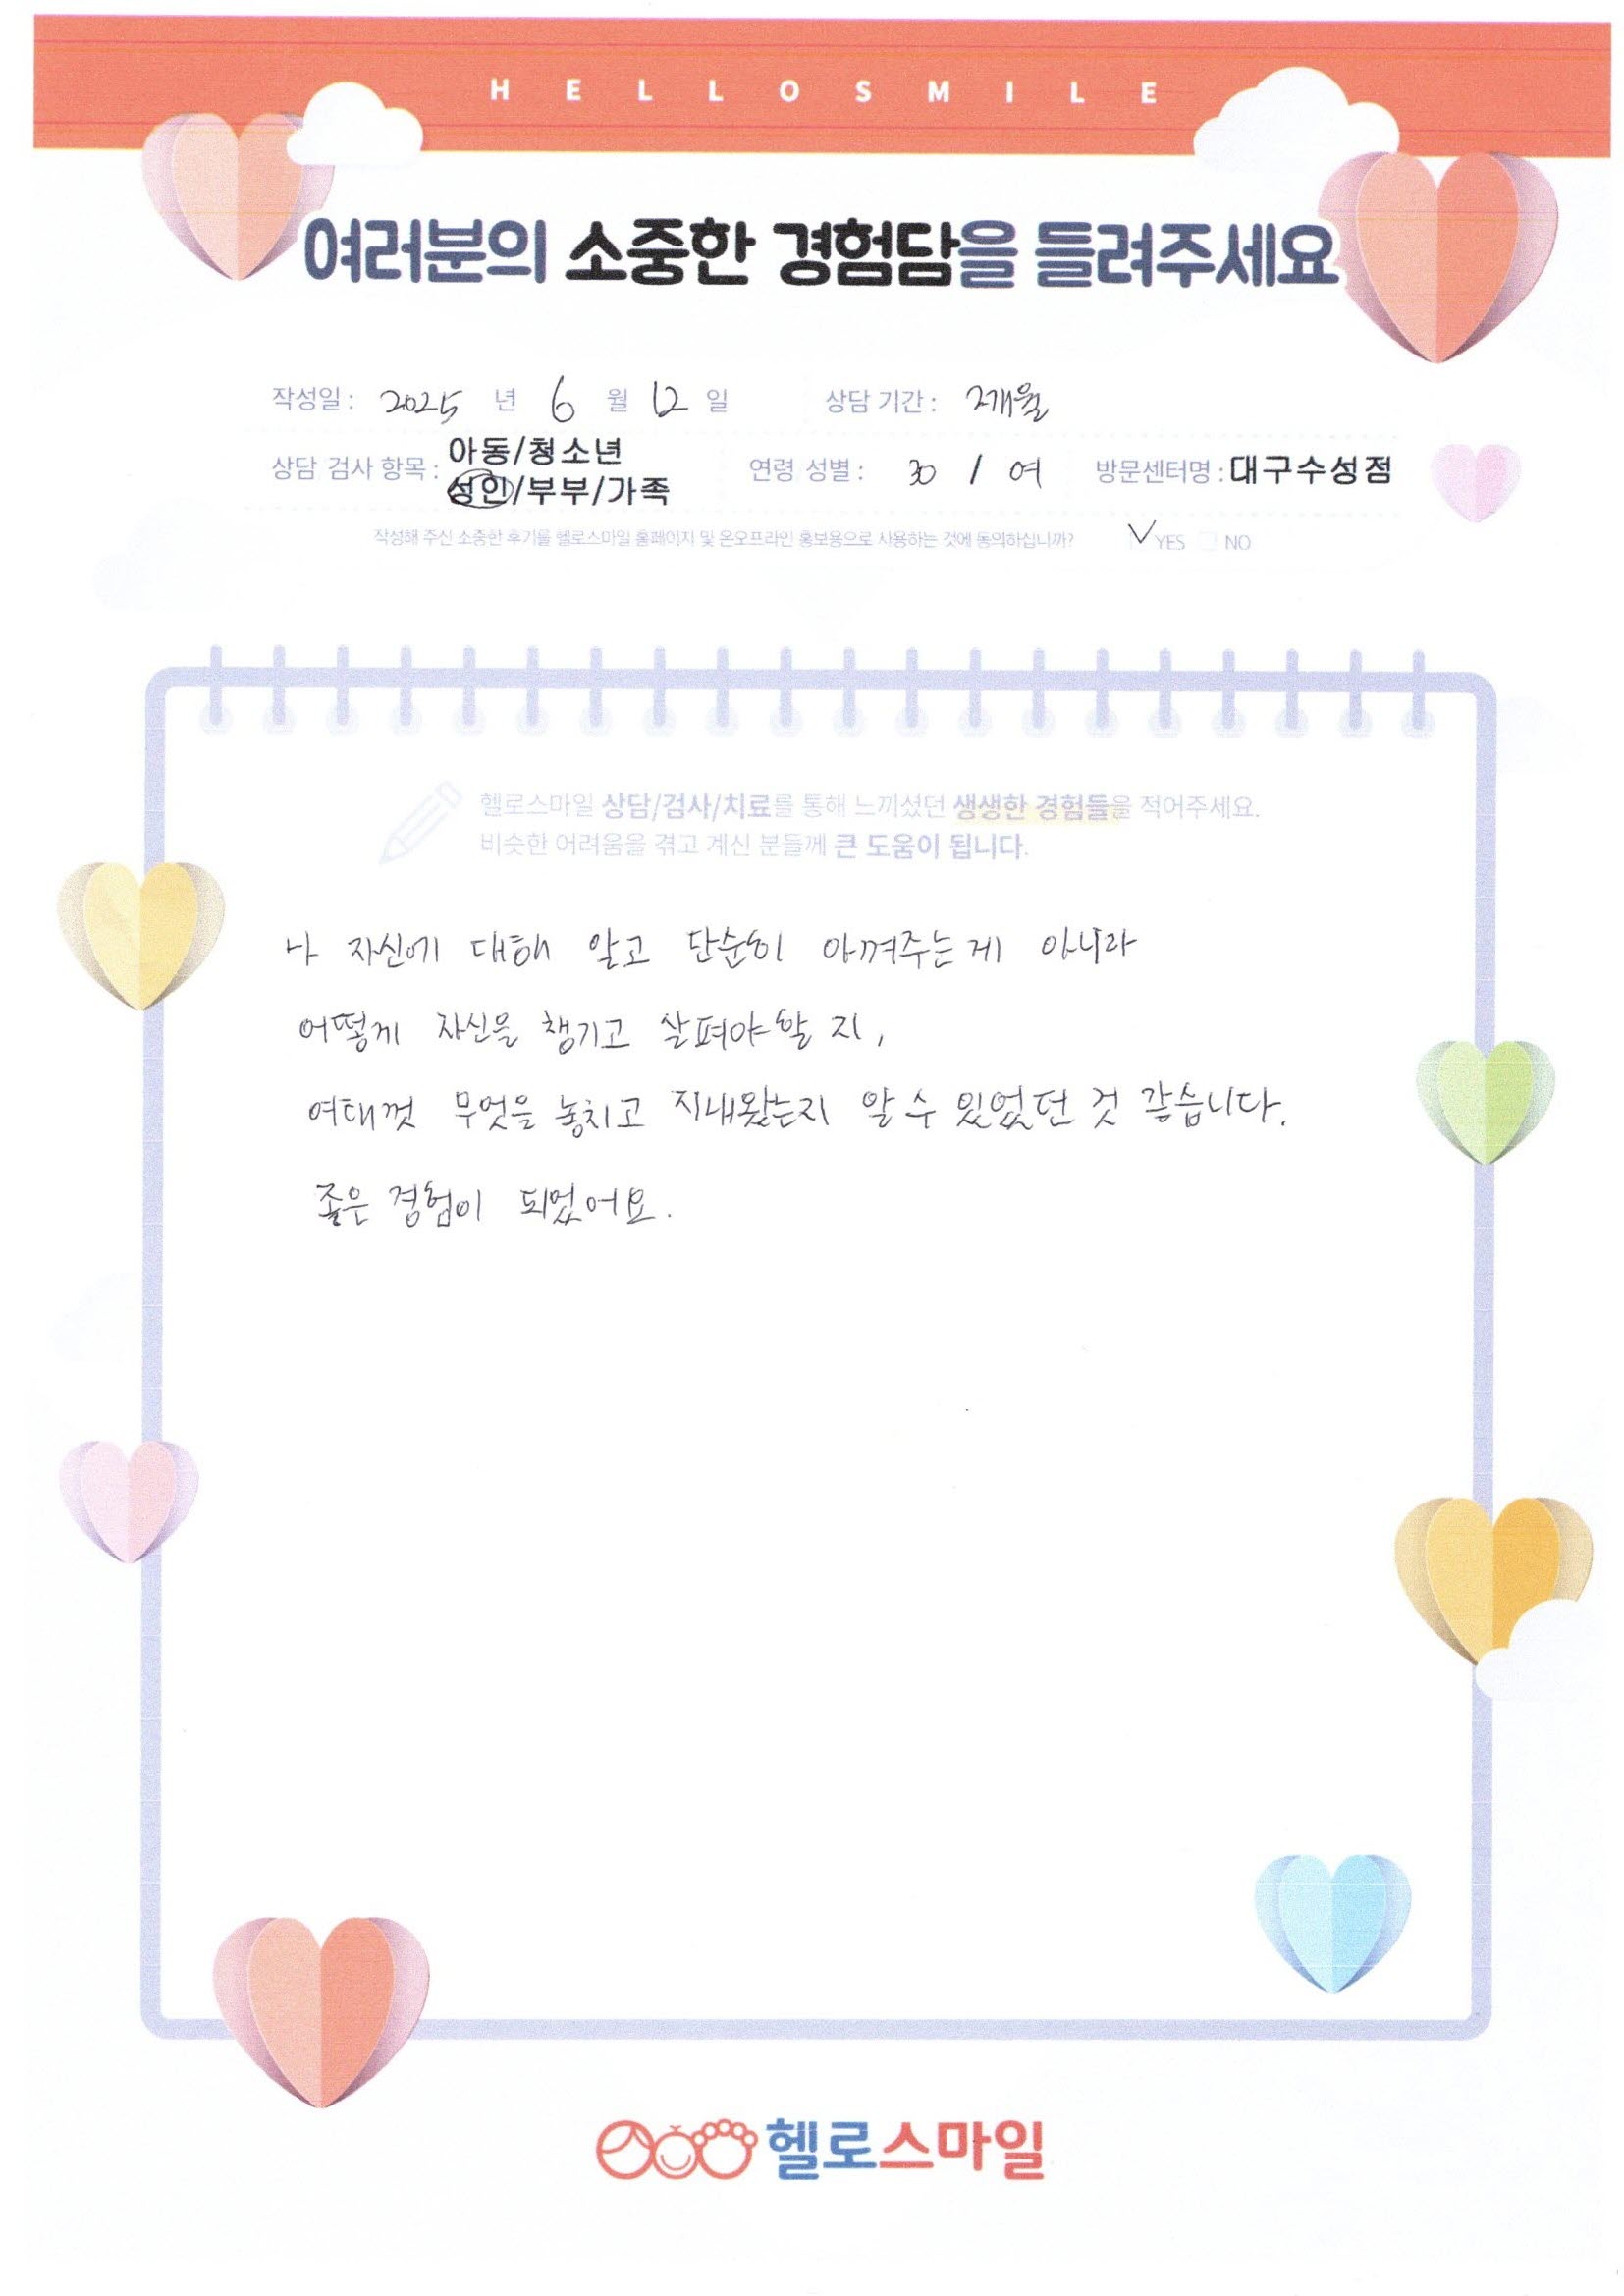 HELLOSMILE
여러분의 소중한 경험담을 들려주세요
작성일 : 2025 년 6 월 12 일 상담 기간 : 2개월
상담 검사 항목 : 아동/청소년
성인/부부/가족
연령 성별 : 30 / 여 방문센터명 : 대구수성점
작성해 주신 소중한 후기를 헬로스마일 홈페이지 및 온오프라인 홍보용으로 사용하는 것에 동의하십니까? YES NO
헬로스마일 상담/검사/치료를 통해 느끼셨던 생생한 경험들을 적어주세요.
비슷한 어려움을 겪고 계신 분들께 큰 도움이 됩니다.
나 자신에 대해 알고 단순히 아껴주는게 아니라
어떻게 자신을 챙기고 살펴야할 지,
여태껏 무엇을 놓치고 지내왔는지 알 수 있었던 것 같습니다.
좋은 경험이 되었어요.
헬로스마일